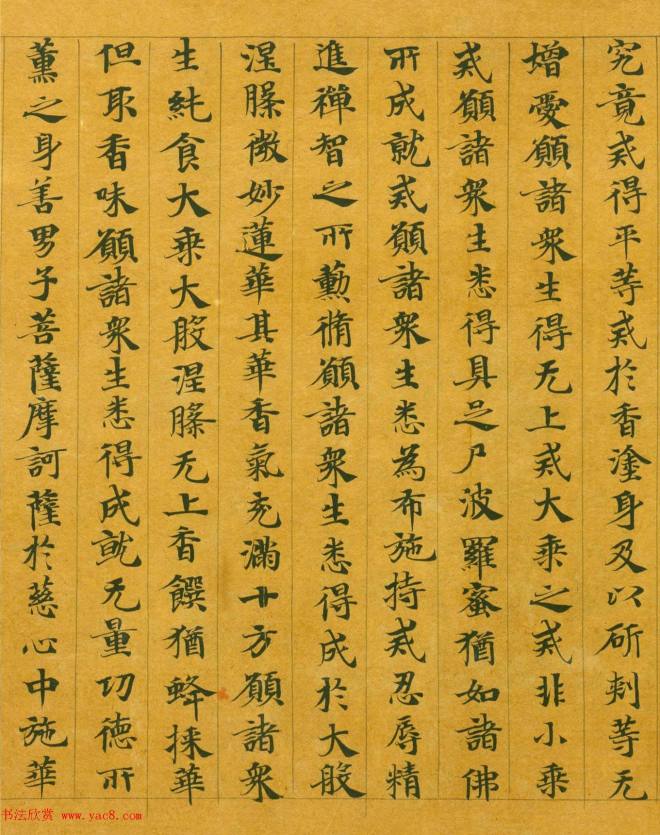 究竟戒得平等戒於香塗身及以斫刺等无
增愛願諸衆生得无上戒大乘之戒非小乘
戒願諸衆生悉得具足尸波羅蜜猶如諸佛
所成就戒願諸衆生悉為布施持戒忍辱精
進禪智之所勳脩願諸衆生悉得成於大般
涅槃微妙蓮華其華香氣充滿十方願諸衆
生純食大乘大般涅槃无上香饌猶蜂採華
但取香味願諸衆生悉得成就无量功德所
薰之身善男子菩薩摩訶薩於慈心中施華
书法欣赏 www.yac8.com